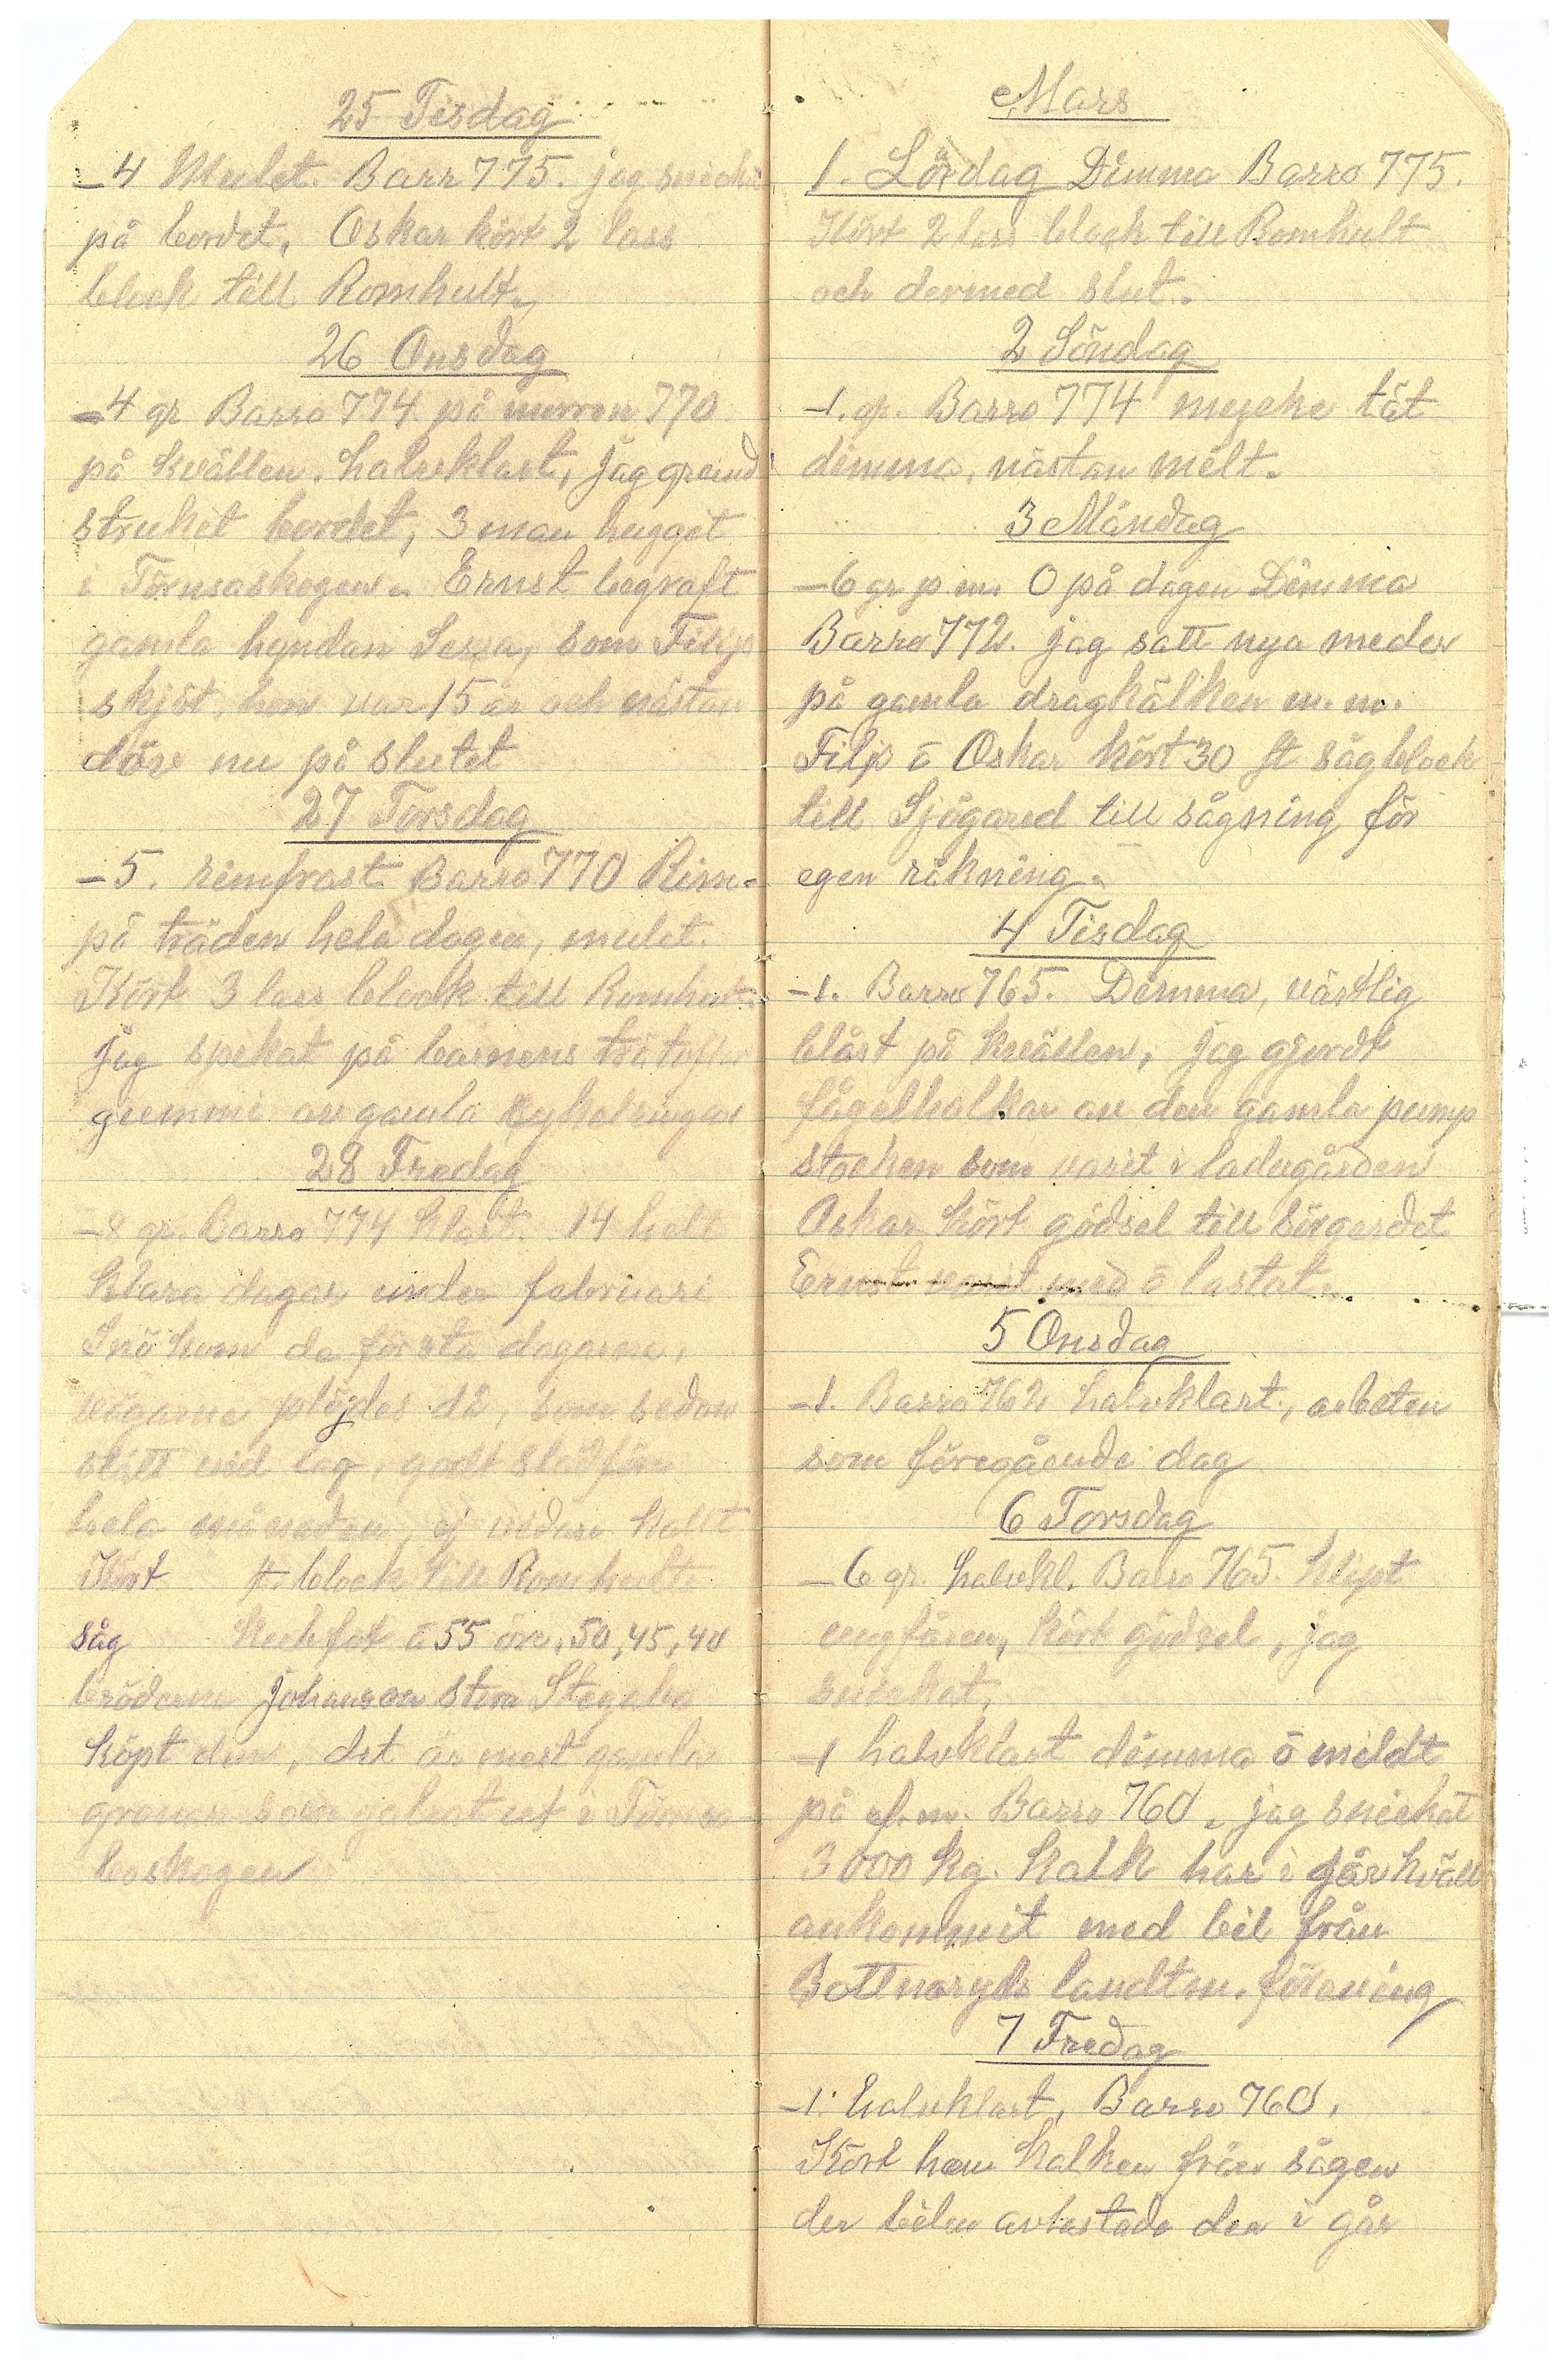 25 Tisdag
-4 Mulet. Barr 775. jag
på bordet, Oskar kört 2 lass
block till Romhult.
26 Onsdag
-4 gr Barro 774 på morron 770
på kvällen. halvklart, jag grund
strukit bordet, 3 man huggit
i Törnsaskogen. Ernst begraft
gamla hyndan som Filip
skjöt, hon var 15 år och nästan
döv nu på slutet
27 Torsdag
-5. rimfrost Barro 770 Rim-
på träden hela dagen, mulet.
Kört 3 lass block till
jag spikat på barnens
gummi av gamla cykelringar
28 Fredag
-8 gr. Barro 774 klart. 14 helt
klara dagar under februari
Snö kom de första dagarne,
vägarne plöjdes då, som sedan
stått vid lag, godt slädföre
hela månaden, ej vidare kallt
Kört st. block till Romhults
såg kubfot á 55 öre, 50, 45, 40
bröderna Johanson
köpt den, det är mest gamla
granar som galrat ut i
boskogen
Mars
1. Lördag Dimma Barro 775.
Kört 2 lass block till Romhult
och dermed slut.
2 Söndag
-1. gr. Barro 774 mycke tät
dimma, nästan milt.
3 Måndag
-6 gr p m. 0 på dagen Dimma
Barro 772. jag satt nya meder
på gamla dragkälken m. m.
Filip o Oskar kört 30 st sågblock
till Sjögared till sågning för
egen räkning.
4 Tisdag
-1. Barro 765. Dimma, västlig
blåst på kvällen, jag gjordt
fågelholkar av den gamla pump
stocken som varit i ladugården
Oskar kört gödsel till sörgerdet
Ernst varit med o lastat.
5 Onsdag
-1. Barro 762 halvklart, arbeten
som föregående dag
6 Torsdag
-6 gr. halvkl. Barro 765. Klipt
ungfåren, kört gödsel, jag
snickat,
-1 halvklart dimma o mildt
på ef.m. Barro 760. jag snickat
3000 kg. kalk har i går kväll
ankommit med bil från
Bottnaryds landtm. förening
7 Fredag
-1. halvklart, Barro 760.
Kört hem kalken från sågen
der bilen avlastade den i går